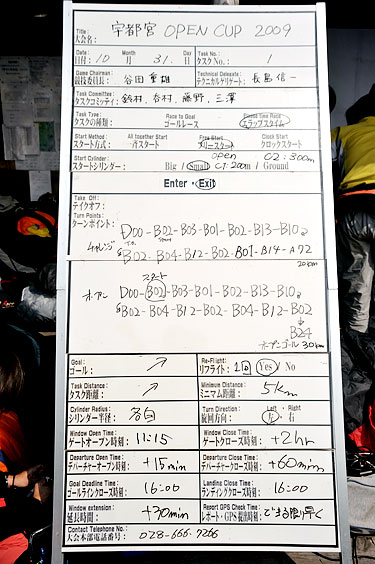 Title: 大会名: 宇都宮 OPEN CUP 2009
Date: 日付: 10 Month 月 31. Day 日 Task No. タスクNo. 1
Game Chairman: 競技委員長: 谷田重雄 Technical Delegate: テクニカルデリゲート: 長島信一
Task Committee: タスクコミッティ: 鈴村、春村、藤野、三澤
Task Type: タスクの種類: Race to Goal ゴールレース Elapse Time Race エラップスタイム
Start Method: スタート方式: All together Start 一斉スタート Free Start フリースタート Clock Start クロックスタート
open 02:300m
Start Cylinder: スタートシリンダー: Big / Small C7:200m / Ground
Enter・Exit
Take Off: テイクオフ:
Turn Points: ターンポイント: D00-B02-B03-B01-B02-B13-B10
チャレンジ B02-B04-B12-B02-B01-B14-A72
20km
スタート
オープン D00-B02-B03-B01-B02-B13-B10
B02-B04-B12-B02-B04-B12-B02
B24
オープンゴール 30km
Goal: ゴール: Re-Flight: リフライト: 1回 Yes / No
Task Distance: タスク距離: Minimum Distance: ミニマム距離: 5km
Cylinder Radius: シリンダー半径: Turn Direction: 旋回方向: Left 左・Right 右
Window Open Time: ゲートオープン時刻: 11:15 Window Close Time: ゲートクローズ時刻: +2hr
Departure Open Time: デパーチャーオープン時刻: +15min Departure Close Time: デパーチャークローズ時刻: +60min
Goal Deadline Time: ゴールラインクローズ時刻: 16:00 Landing Close Time: ランディングクローズ時刻: 16:00
Window extension: 延長時間: +30min Report GPS Check Time: レポート・GPS提出時刻: できる限り早く
Contact Telephone No.: 大会本部電話番号: 028-666-7266